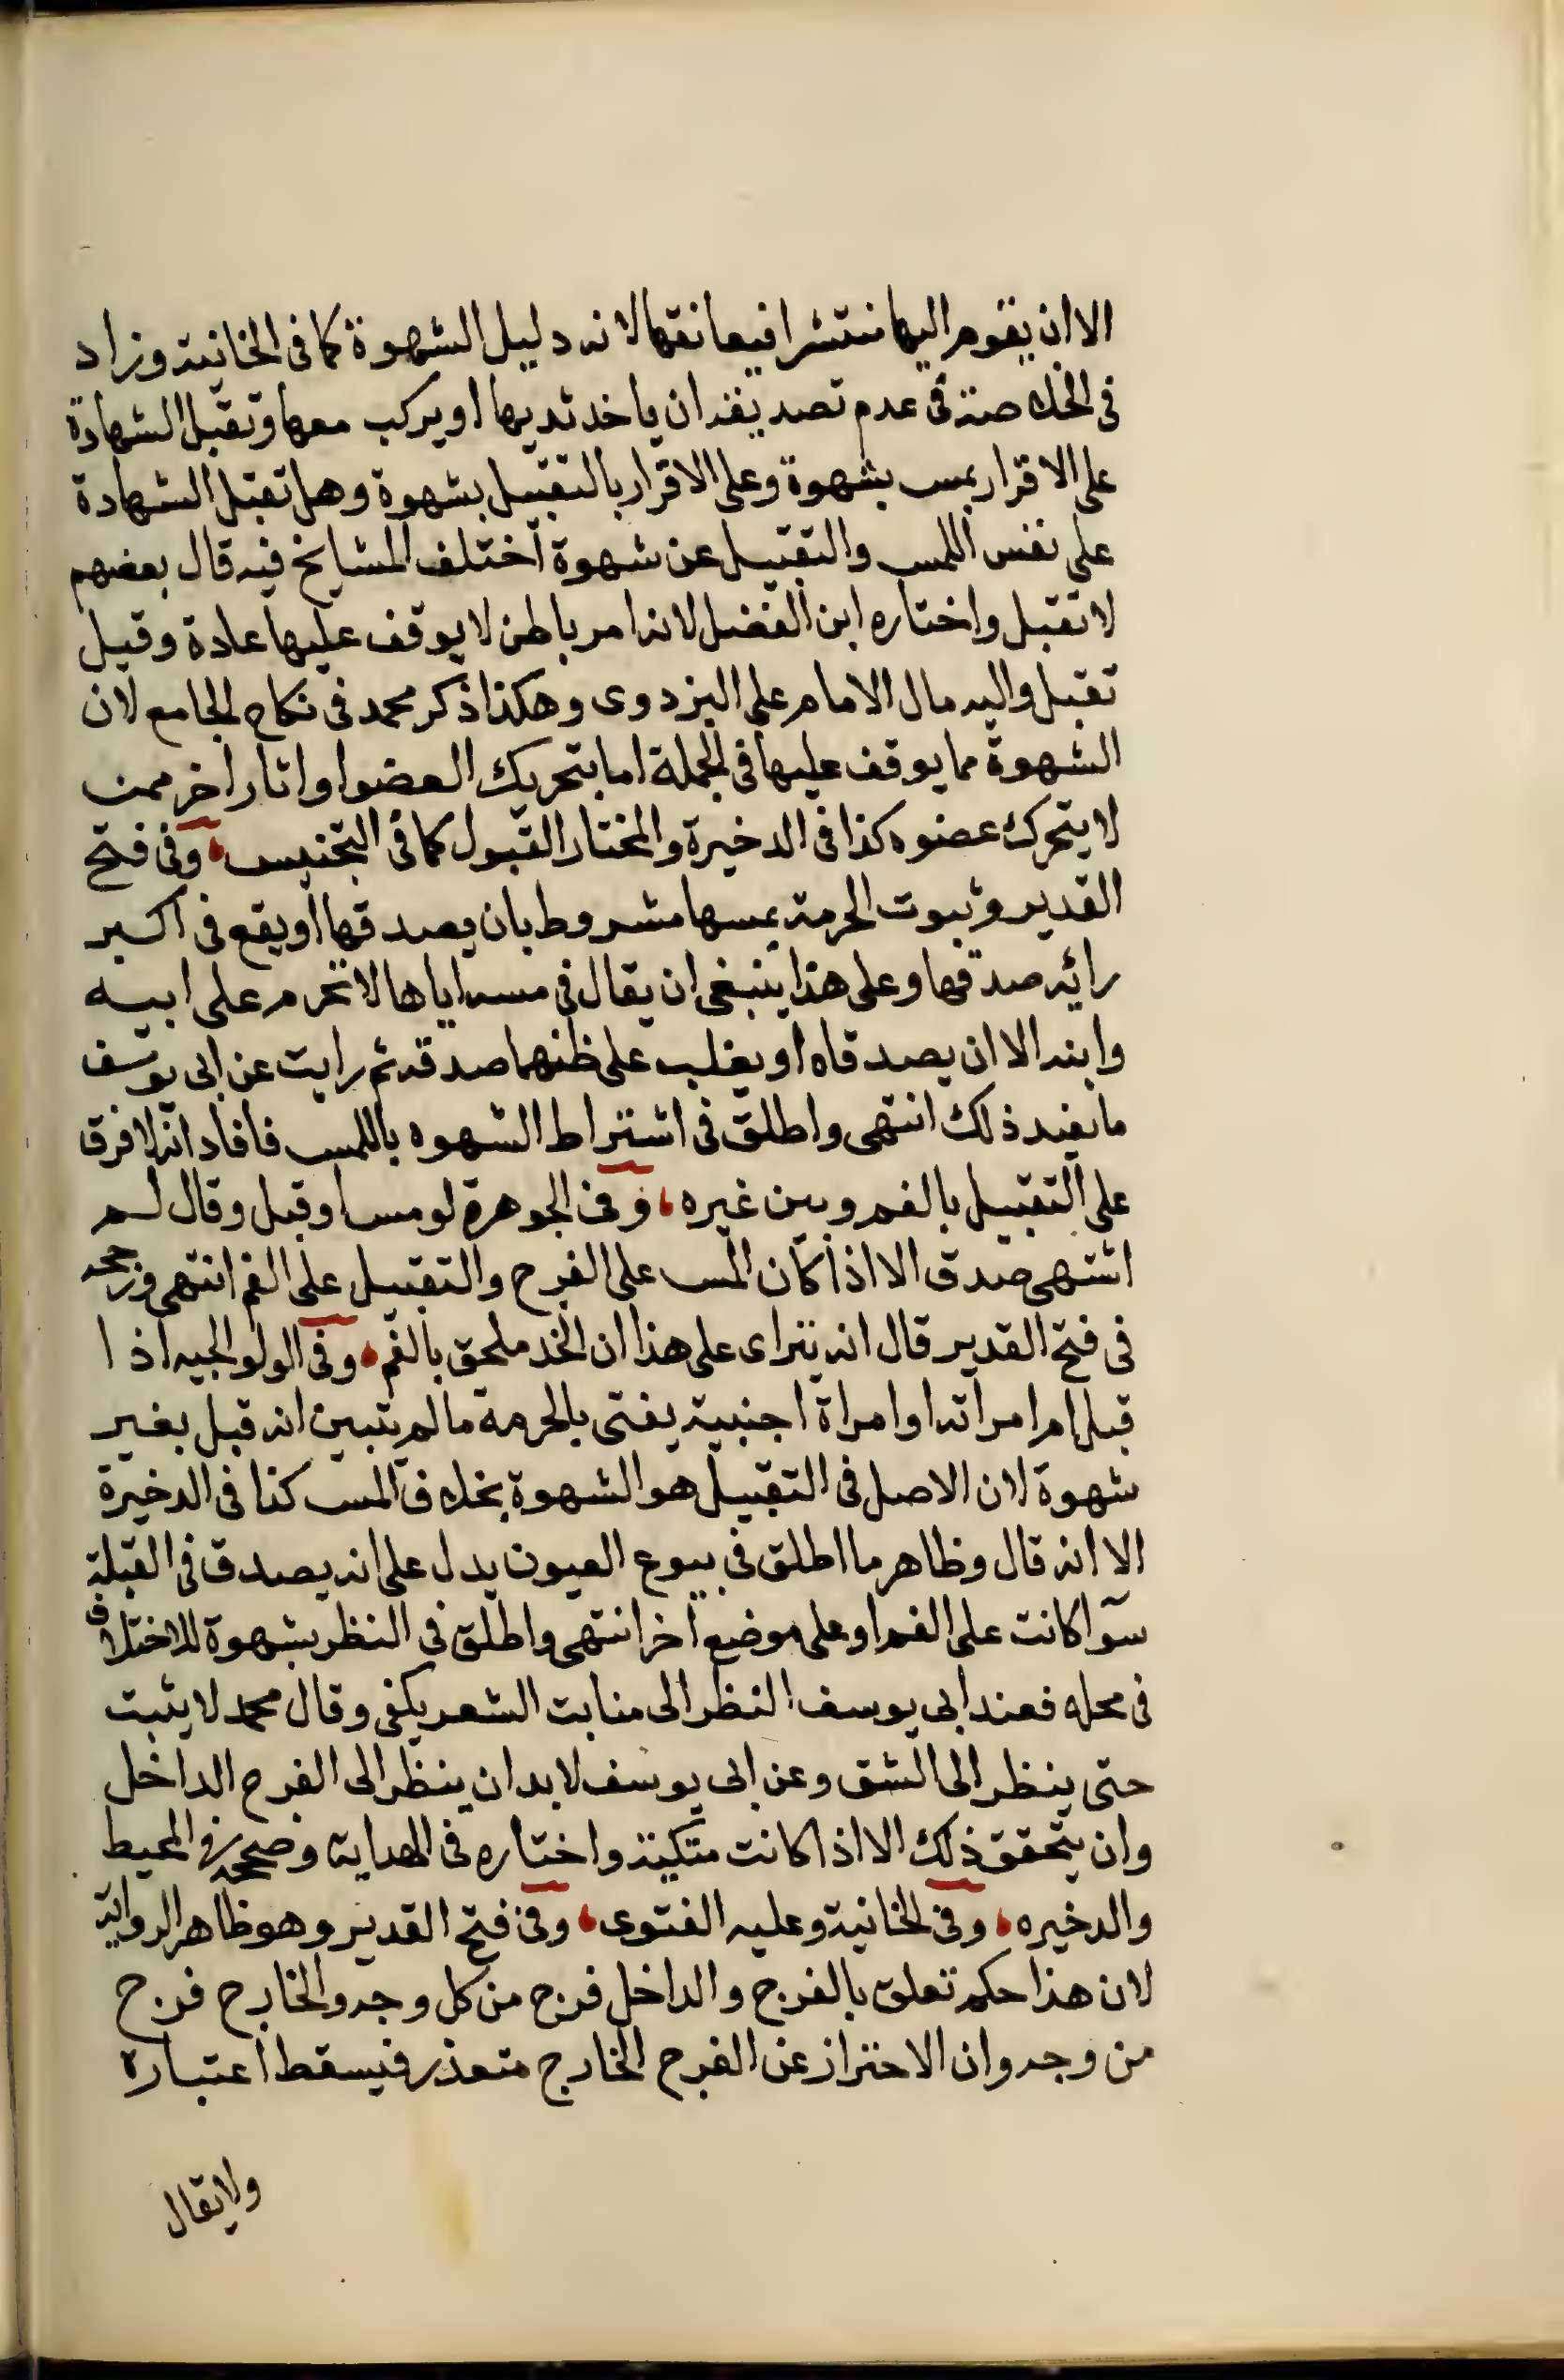 الا ان يقوم اليها منتشرا فيعانقها لانه دليل الشهوة كما فى الخانية وزاد
فى الخلاصة فى عدم تصديقه ان ياخد ثديها او يركب معها وتقبل الشهادة
على الاقرار بمس بشهوة وعلى الاقرار بالتقبيل بشهوة وهل تقبل الشهادة
على نفس اللمس والتقبيل عن شهوة اختلف المشايخ فيه قال بعضهم
لا تقبل واختاره ابن الفضل لانه امر باطن لا يوقف عليها عادة وقيل
تقبل واليه مال الامام على البزدوى وهكذا ذكر محمد فى نكاح الجامع لان
الشهوة مما يوقف عليها فى الجملة اما بتحريك العضو او اثار اخر ممن
لا يتحرك عضوه كذا فى الدخيرة والمختار القبول كما فى التجنيس، وفى فتح
القدير وثبوت الحرمة بمسها مشروط بان يصدقها او يقع فى اكبر
رائه صدقها وعلى هذا ينبغى ان يقال فى مسه اياها لا تحرم على ابيه
وابنه الا ان يصدقاه او يغلب على ظنهما صدقه ثم رايت عن ابى يوسف
ما يفيد ذلك انتهى واطلق فى اشتراط الشهوه باللمس فافاد انه لا فرق
على التقبيل بالفم وبين غيره، وفى الجوهرة لو مس او قبل وقال لم
اشتهى صدق الا اذا كان المس على الفرج والتقبيل على الفم انتهى ورجحه
فى فتح القدير قال انه يتراى على هذا ان الخد ملحق بالفم، وفى الولو الجيه اذا
قبل ام امراته او امراة اجنبية يفتى بالحرمة ما لم يتبين انه قبل بغير
شهوة لان الاصل فى التقبيل هو الشهوة بخلاف المس كذا فى الدخيرة
الا انه قال وظاهر ما اطلق فى بيوع العيون يدل على انه يصدق فى القبلة
سوآ كانت على الفم او على موضع اخر انتهى واطلق فى النظر بشهوة للاختلاف
فى محله فعند ابى يوسف النظر الى منابت الشعر يكفى وقال محمد لا يثبت
حتى ينظر الى الشق وعن ابى يوسف لا بد ان ينظر الى الفرج الداخل
وان يتحقق ذلك الا اذا كانت متكية واختاره فى الهداية وصححه فى المحيط
والدخيره، وفى الخانية وعليه الفتوى، وفى فتح القدير وهو ظاهر الرواية
لان هذا حكم تعلق بالفرج والداخل فرج من كل وجه والخارج فرج
من وجه وان الاحتراز عن الفرج الخارج متعذر فيسقط اعتباره
ولا يقال